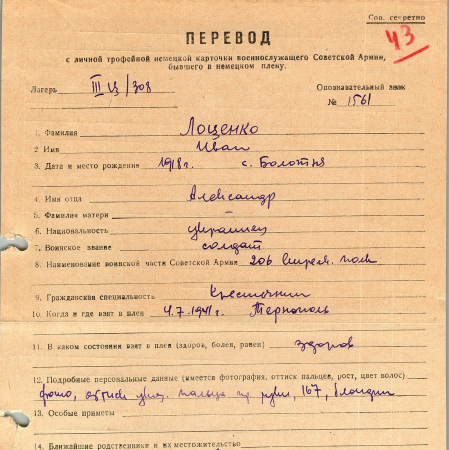 Сов. секретно
43
ПЕРЕВОД
с личной трофейной немецкой карточки военнослужащего Советской Армии,
бывшего в немецком плену.
Лагерь III Ц/308 Опознавательный знак
№ 1561
1. Фамилия Лоценко
2. Имя Иван
3. Дата и место рождения 1918г. с. Болотня
4. Имя отца Александр
5. Фамилия матери –
6. Национальность украинец
7. Воинское звание солдат
8. Наименование воинской части Советской Армии 206 стрелк. полк
9. Гражданская специальность Крестьянин
10. Когда и где взят в плен 4.7.1941г. Тернополь
11. В каком состоянии взят в плен (здоров, болен, ранен) здоров
12. Подробные персональные данные (имеется фотография, оттиск пальцев, рост, цвет волос)
фото, оттиск указ. пальца пр. руки, 167, блондин
13. Особые приметы
14. Ближайшие родственники и их местожительство